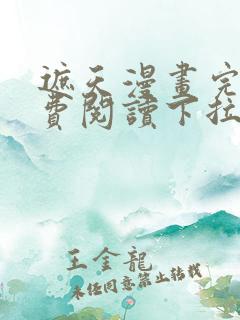 遮天漫畫完
費閱讀下拉
王金龍
未经同意禁止转载